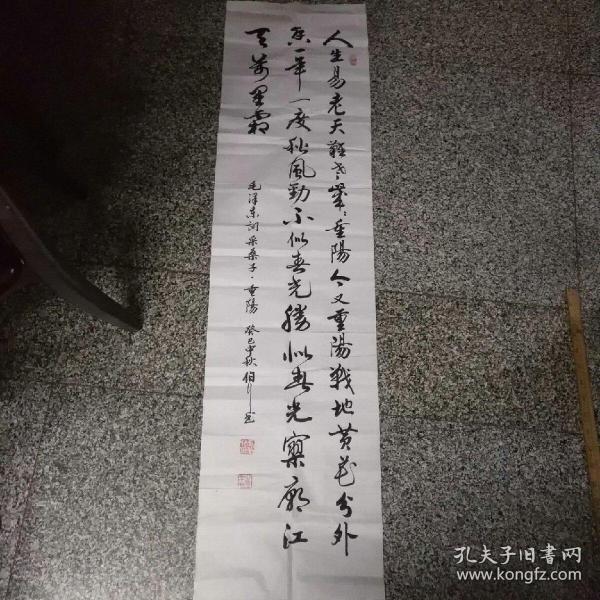 人生易老天難老歲歲重陽今又重陽戰地黃花分外
香一年一度秋風勁不似春光勝似春光寥廓江
天萬里霜
毛澤東詞采桑子·重陽 癸巳中秋伯
孔夫子旧書网
www.kongfz.com